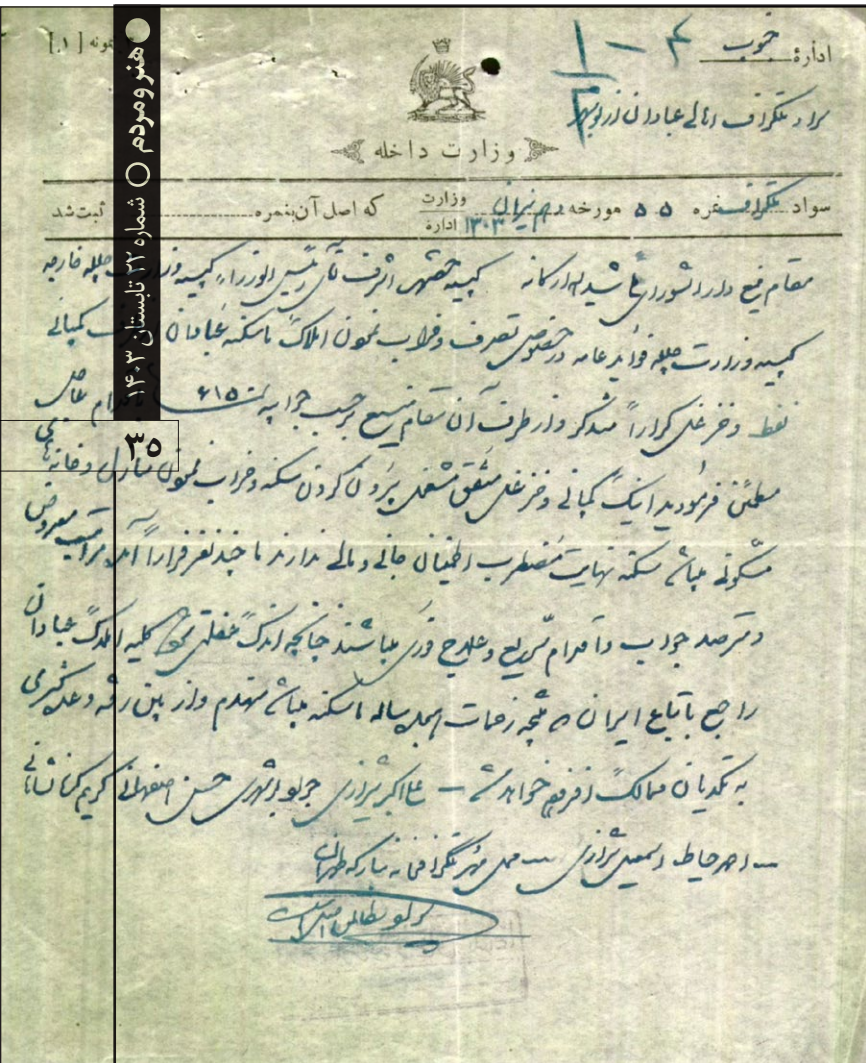 ادارۀ جنوب
۴ — ۱
[نمونه [۱
سواد تلگراف اهالی عبادان از بوشهر
وزارت داخله
سواد تلگراف نمره ۵۵ مورخه دهم میزان ۱۳۰۳ وزارت اداره که اصل آن بنمره ثبت شد
مقام منیع دارالشورای شیدالله ارکانه کپیه حضور اشرف آقای رئیس الوزراء کپیه وزارت جلیله خارجه
کپیه وزارت جلیله فواید عامه در خصوص تصرف و خراب نمودن املاک ما سکنه عبادان از طرف کمپانی
نفط و خزعل کراراً متذکر و از طرف آن مقام منیع بر حسب جوابیه ۶۱۵ اقدام عاجل
مطمئن فرمودید اینک کمپانی و خزعل متفق مشغول بیرون کردن سکنه و خراب نمودن منازل و خانه‌های
مسکونی میباشند سکنه نهایت مضطرب اطمینان جانی و مالی ندارند ما چند نفر فراراً آمده مراتب معروض
و مترصد جواب و اقدام سریع و علاج فوری میباشند چنانچه اندک غفلتی شود کلیه املاک عبادان
راجع باتباع ایران که نتیجه زحمات چهل ساله ما سکنه میباشد منهدم و از بین رفته و عده کثیری
به گدایان ممالک افزوده خواهد شد — علی اکبر شیرازی بوشهری حسن اصفهانی کریم کاشانی
احمد خیاط اسمعیل شیرازی — محل مهر تلگرافخانه مبارکه طهران
سواد مطابق اصل است
هنر و مردم
شماره ۲۲ تابستان ۱۴۰۳
۳۵